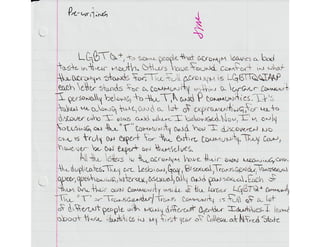 Pre-writing
LGBTQ+, to some people that acronym leaves a bad
taste in their mouth. Others have found comfort in what
the acronym stands for. The full acronym is LGBTTQQIAAP
each letter stands for a community within a larger community
I personally belong to the T, A and P communities. It's
taken me a long time, and a lot of experimenting, for me to
discover who I was and where I belonged. Now, I'm only
focusing on the "T" community and how I discovered no
one is truly an expert for the entire community. They can,
however be an expert on themselves.
All the letters in the acronym have their own meanings, even
the duplicates. They are Lesbian, Gay, Bisexual, Transgender, Transsexual
queer, questioning, intersex, asexual, ally and pansexual. Each of
them are their own community inside of the larger LGBTQ+ community
The "T" or Transgender/Trans community is full of a lot
of different people with many different Gender Identities. I learned
about those identities in my first year of College at Alfred State